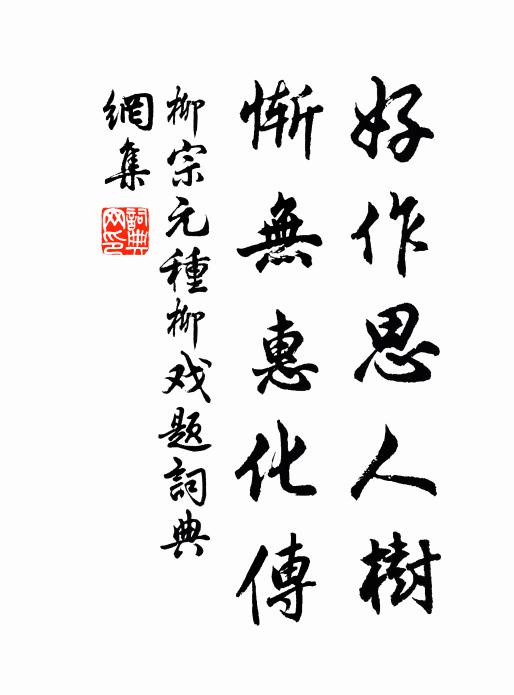 好作思人樹
慚無惠化傳
柳宗元種柳戏题詞典
網集
詞典网印